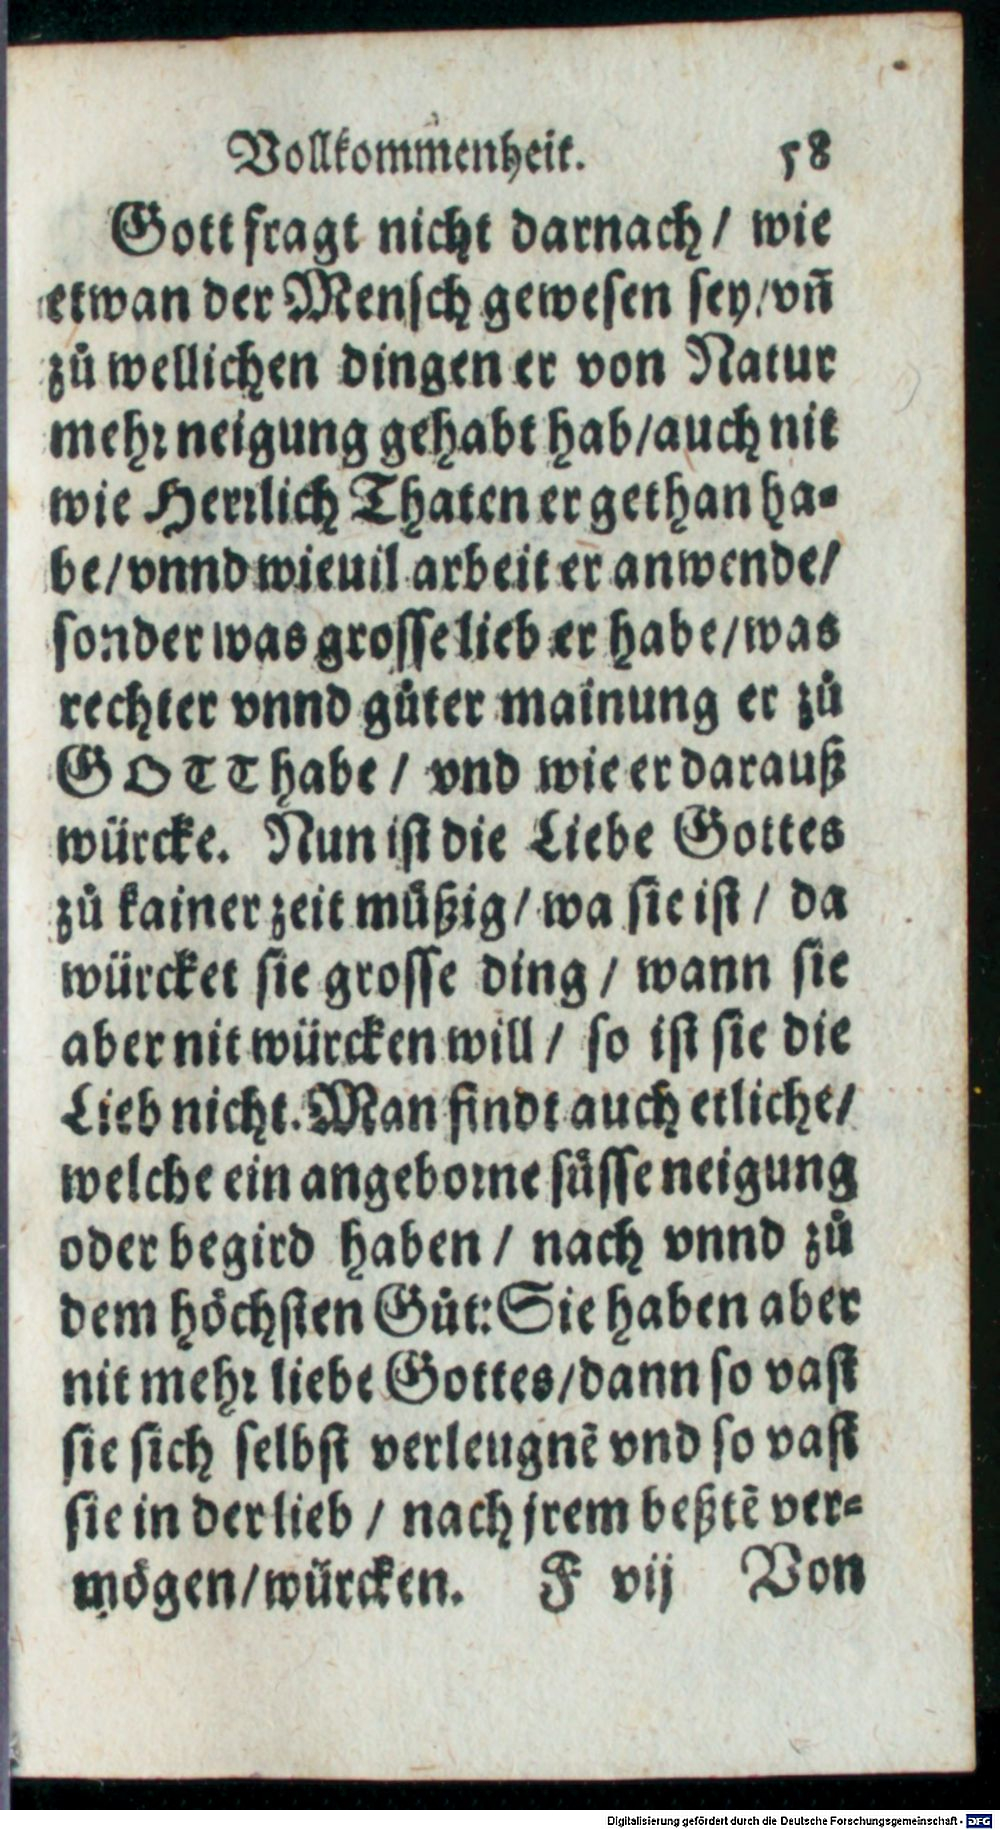 Vollkommenheit. 58
Gott fragt nicht darnach / wie
etwan der Mensch gewesen sey / vñ
zů wellichen dingen er von Natur
mehr neigung gehabt hab / auch nit
wie Herrlich Thaten er gethan ha-
be / vnnd wieuil arbeit er anwende /
sonder was grosse lieb er habe / was
rechter vnnd gůter mainung er zů
GOTT habe / vnd wie er darauß
würcke. Nun ist die Liebe Gottes
zů kainer zeit můßig / wa sie ist / da
würcket sie grosse ding / wann sie
aber nit würcken will / so ist sie die
Lieb nicht. Man findt auch etliche /
welche ein angeborne süsse neigung
oder begird haben / nach vnnd zů
dem höchsten Gůt: Sie haben aber
nit mehr liebe Gottes / dann so vast
sie sich selbst verleugnẽ vnd so vast
sie in der lieb / nach jrem beßtẽ ver-
mögen / würcken. F vij Von
Digitalisierung gefördert durch die Deutsche Forschungsgemeinschaft - DFG